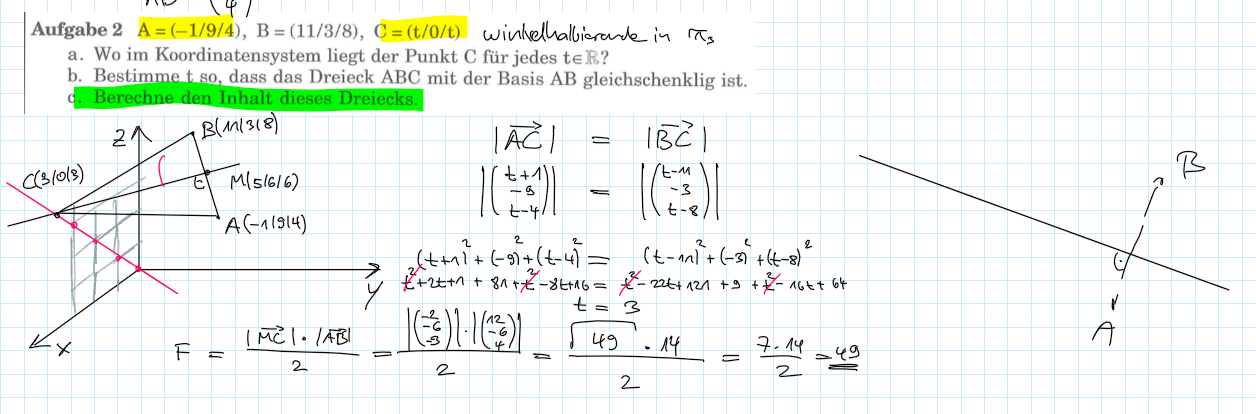 Aufgabe 2 A = (−1/9/4), B = (11/3/8), C = (t/0/t) winkelhalbierende in π₃
a. Wo im Koordinatensystem liegt der Punkt C für jedes t∈ℝ?
b. Bestimme t so, dass das Dreieck ABC mit der Basis AB gleichschenklig ist.
c. Berechne den Inhalt dieses Dreiecks.
Z
B(11/3/8)
C(3/0/3)
M(5/6/6)
A(-1/9/4)
Y
X
|AC→| = |BC→|
|(t+1 / -9 / t-4)| = |(t-11 / -3 / t-8)|
(t+1)² + (-9)² + (t-4)² = (t-11)² + (-3)² + (t-8)²
t² + 2t + 1 + 81 + t² - 8t + 16 = t² - 22t + 121 + 9 + t² - 16t + 64
t = 3
F = |MC→| · |AB→| / 2 = |(-2 / -6 / -3)| · |(12 / -6 / 4)| / 2 = √49 · 14 / 2 = 7 · 14 / 2 = 49
B
A